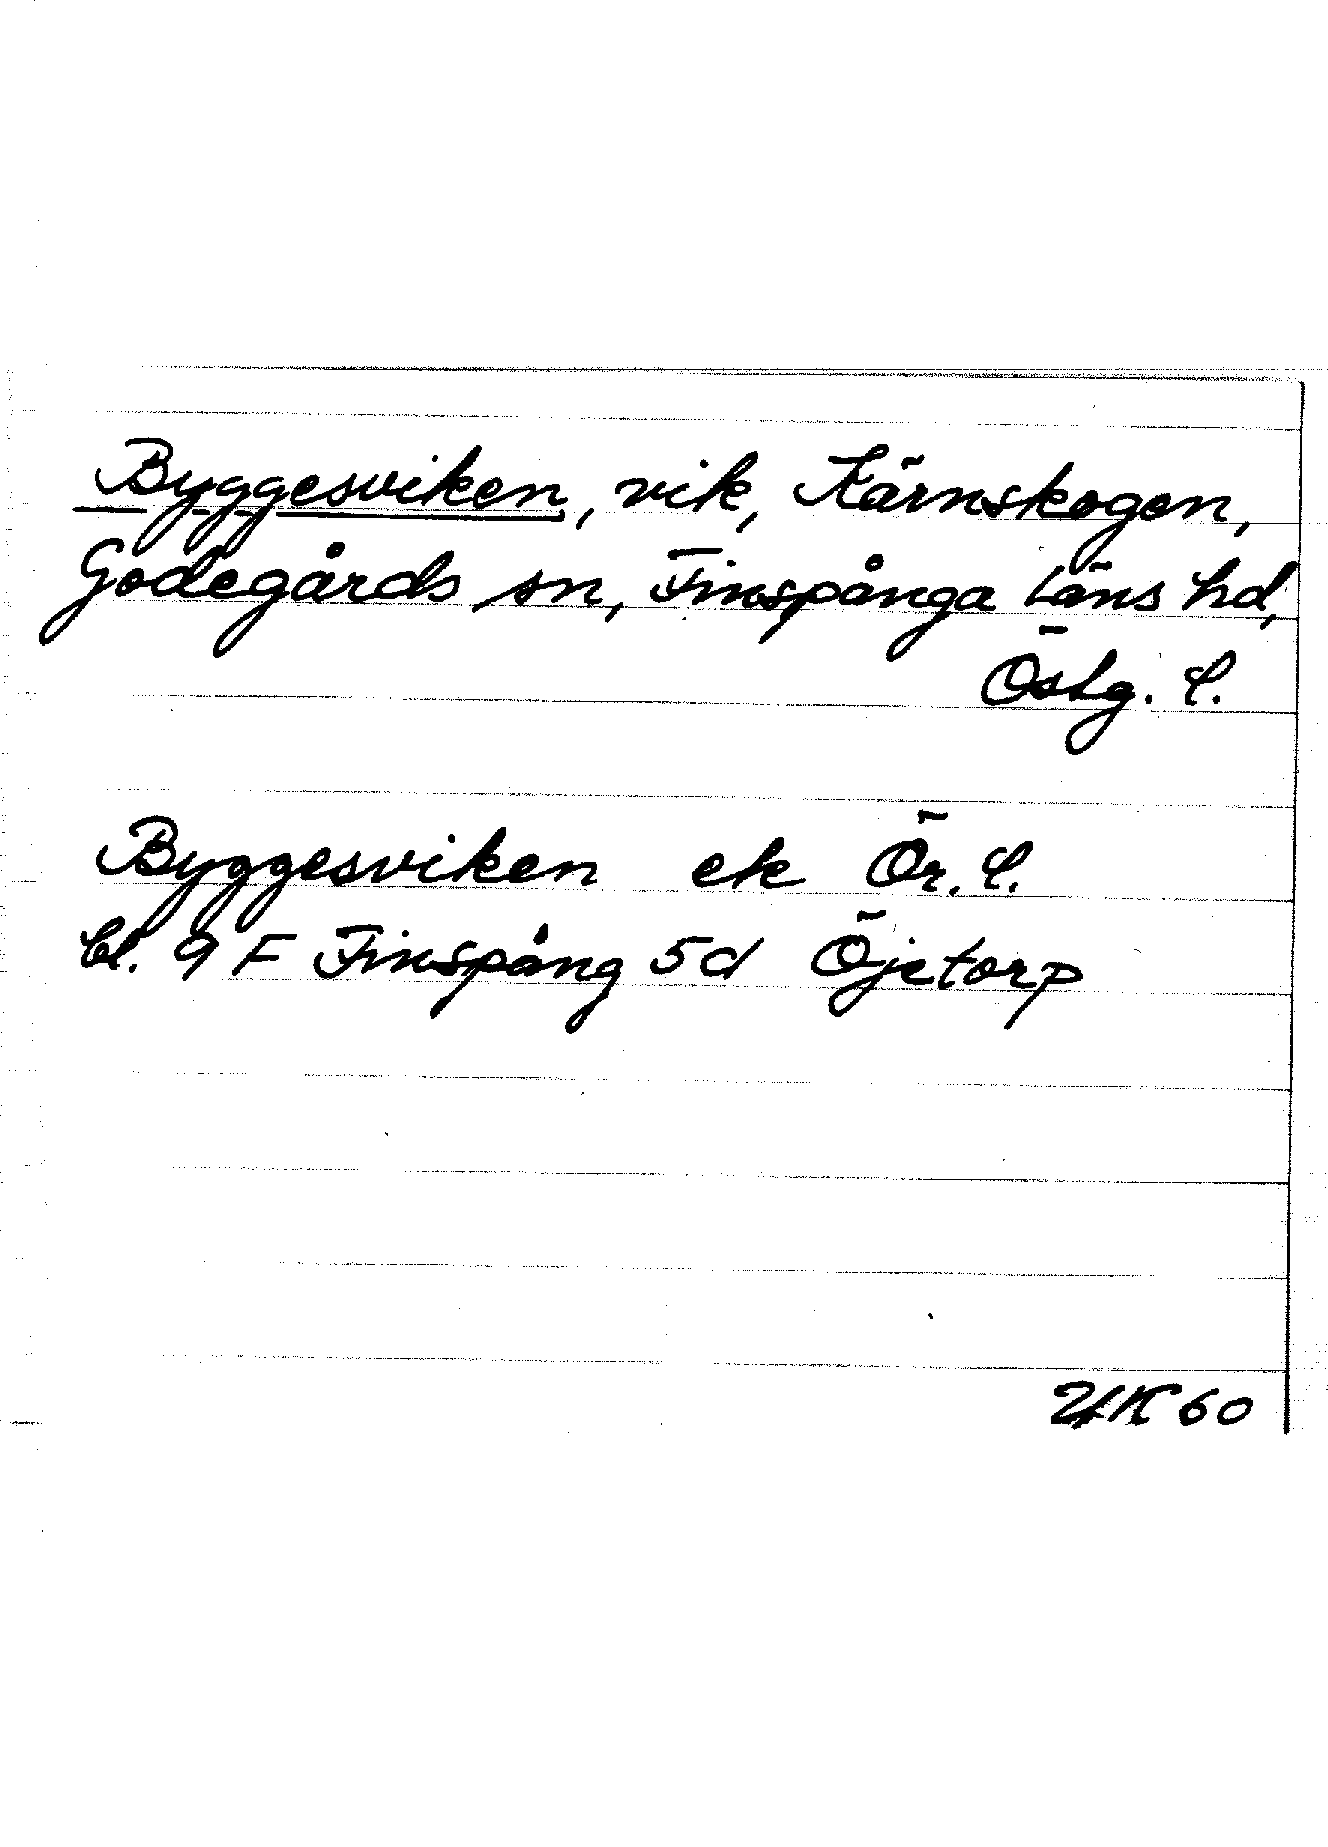 Byggesviken, vik, Kärnskogen,
Godegårds sn, Finspånga läns hd,
Östg. l.
Byggesviken ek Ör. l.
bl. 9 F Finspång 5d Öjetorp
60